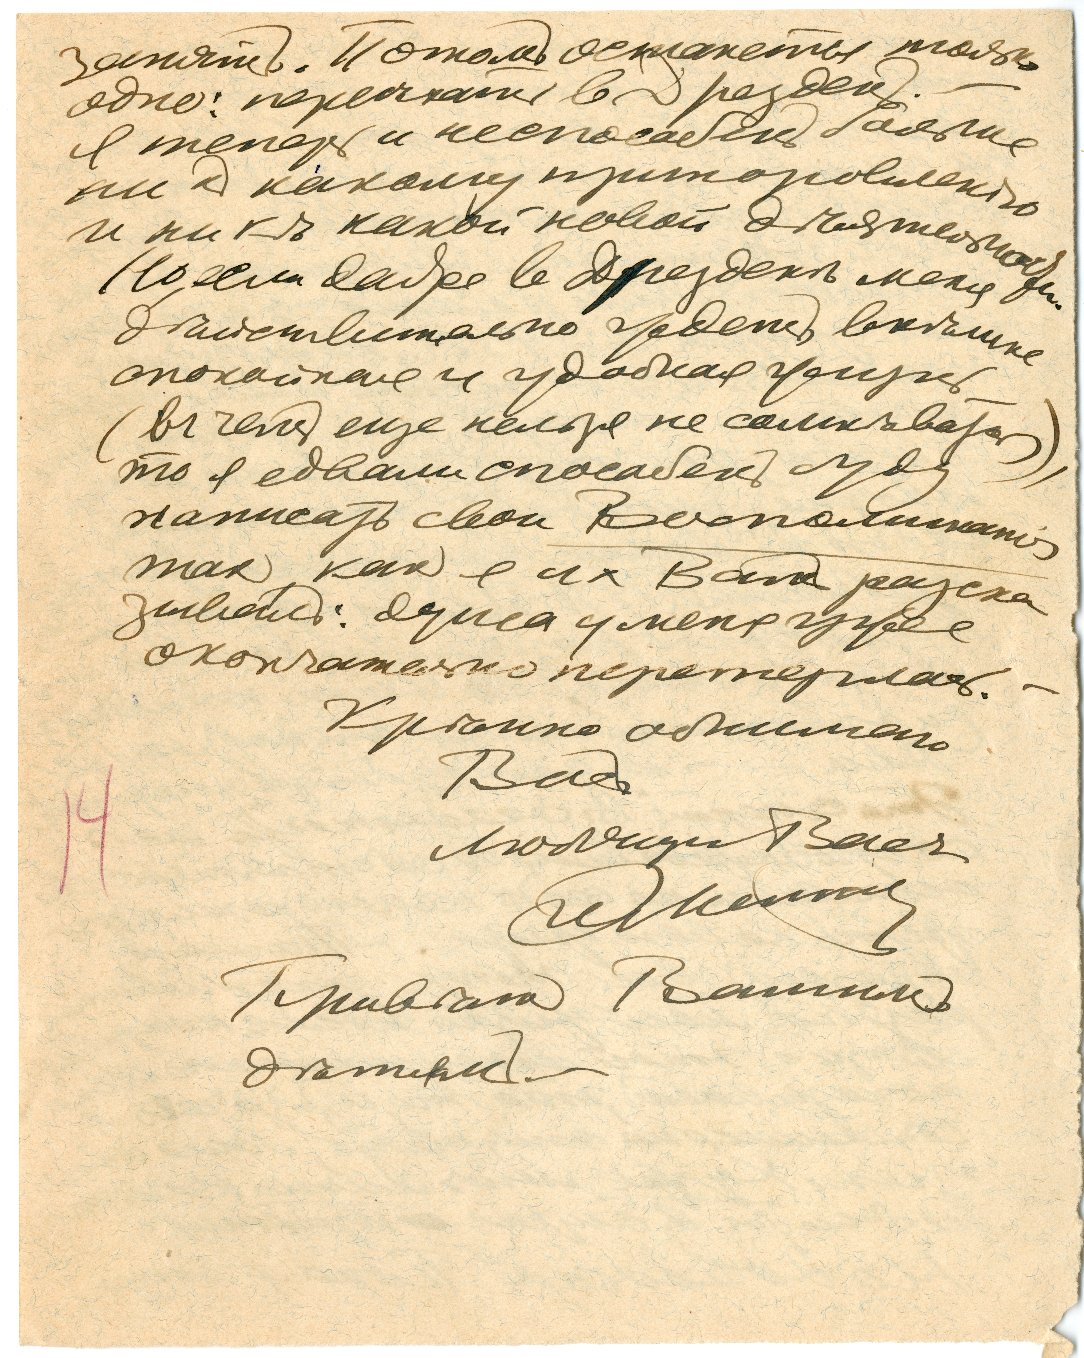 занятъ. Потомъ останется только
одно: переѣхать въ Дрезденъ. —
Я теперь и неспособенъ больше
ни къ какому приноровленію
и ни къ какой новой дѣятельности.
Но если даже въ Дрезденѣ меня
дѣйствительно ждетъ внѣшне
спокойная и удобная жизнь
(въ чемъ еще нельзя не сомнѣваться),
то я едва ли способенъ буду
написать свои Воспоминанія
такъ, какъ я ихъ Вамъ разска
зывалъ: душа у меня уже
окончательно перетерлась. —
Крѣпко обнимаю
Васъ
Любящій Васъ
Привѣтъ Вашимъ
дѣтямъ. —
14